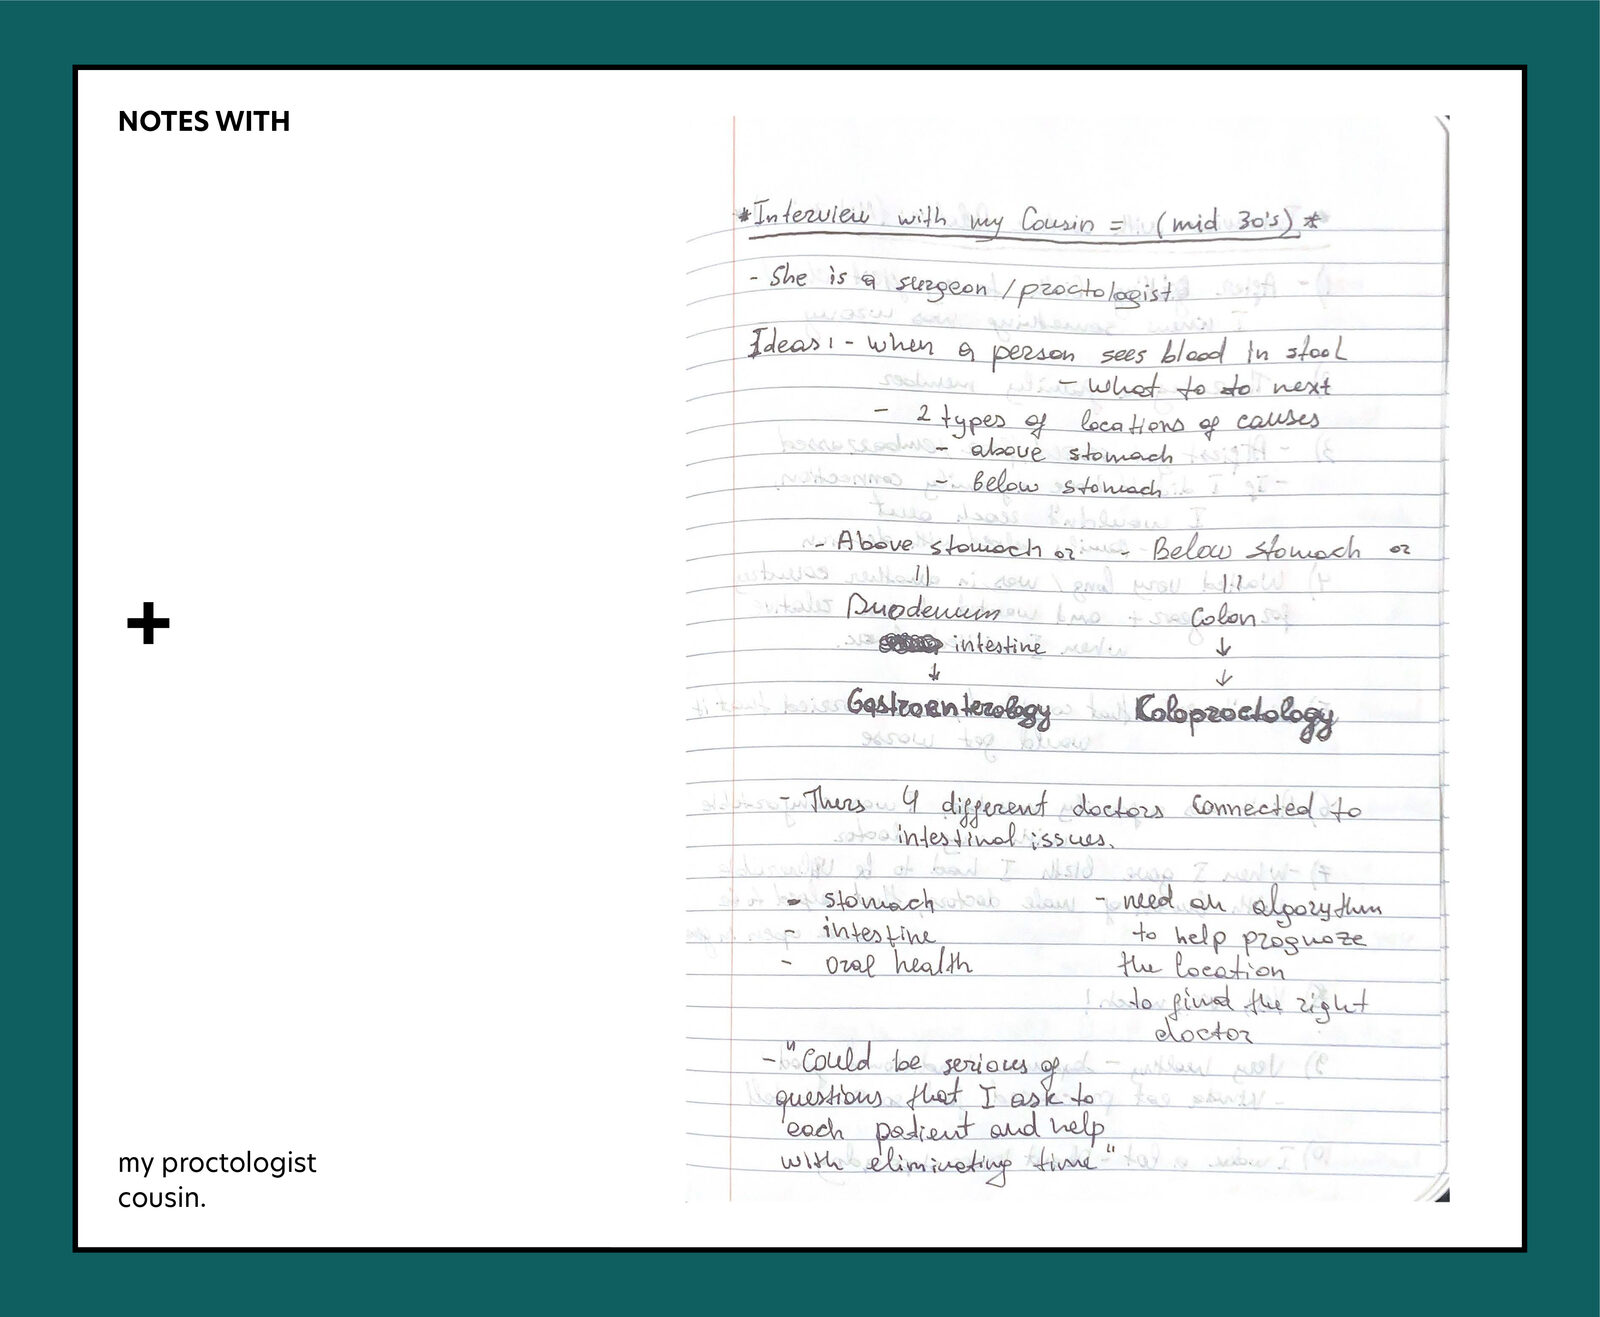 NOTES WITH
+
my proctologist
cousin.
*Interview with my Cousin = (mid 30's)*
- She is a surgeon / proctologist
Ideas: - when a person sees blood in stool
- what to to next
- 2 types of locations of causes
- above stomach
- Below stomach
- Above stomach or - Below stomach or
Duodenum Colon
intestine
Gastroenterology Koloproctology
- Thers 4 different doctors connected to
intestinal issues.
- stomach - need an algorythm
- intestine to help prognoze
- oral health the location
to gind the right
doctor
- "Could be serious of
questions that I ask to
each patient and help
with eliminating time"